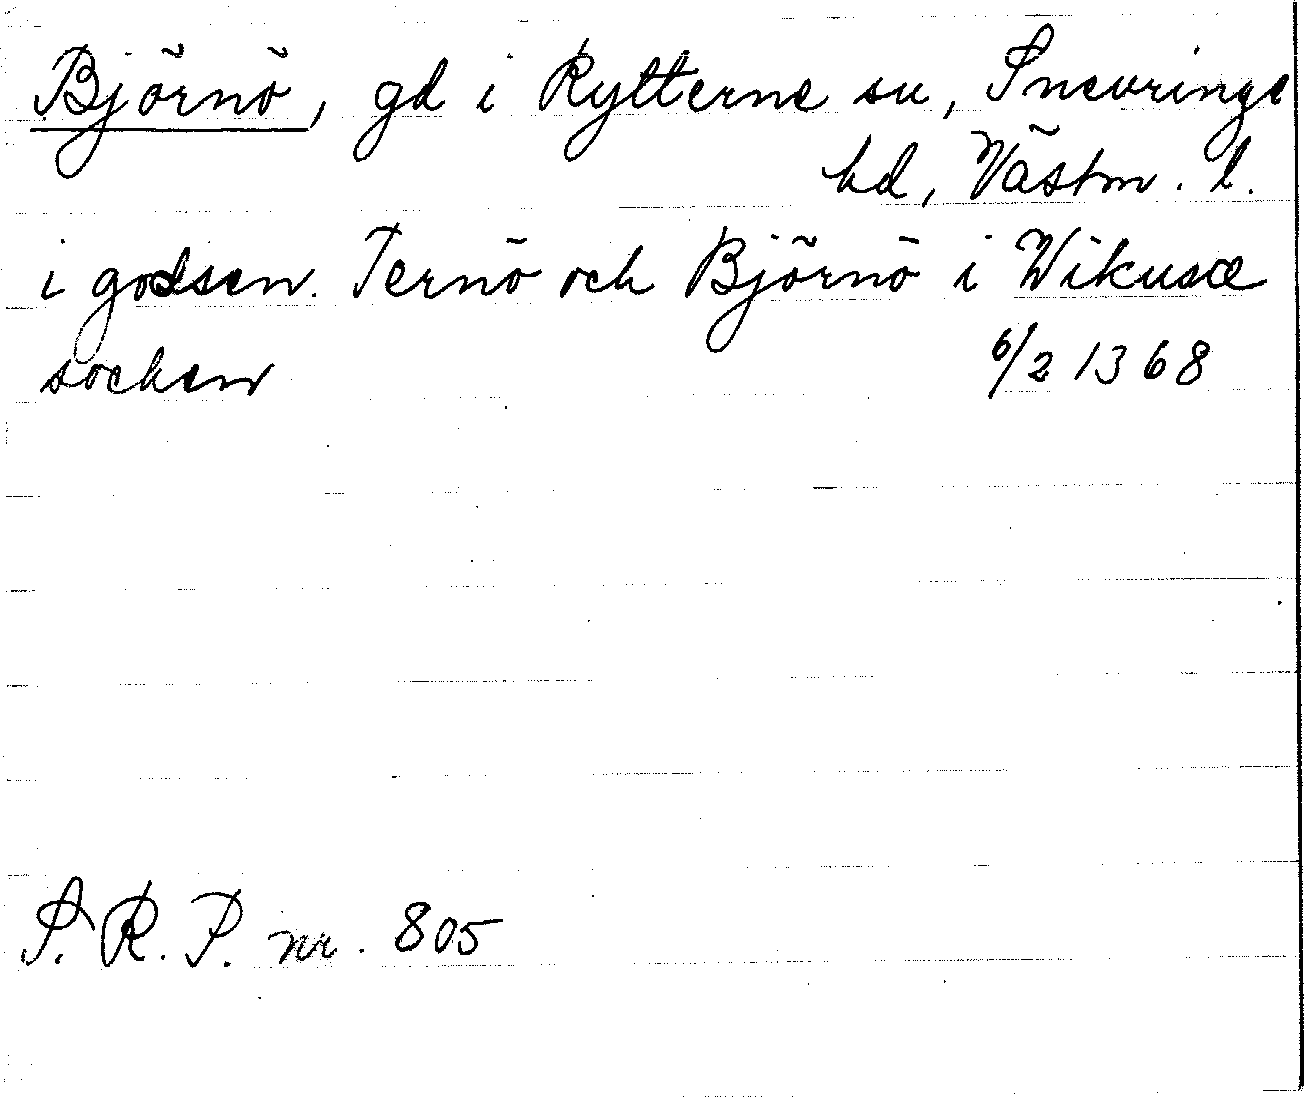 Björnö, gd i Rytterne sn, Snevringe
hd, Västm. l.
i godsen. Ternö och Björnö i Wikusæ
socken 6/2 1368
S. R. P. nr. 805